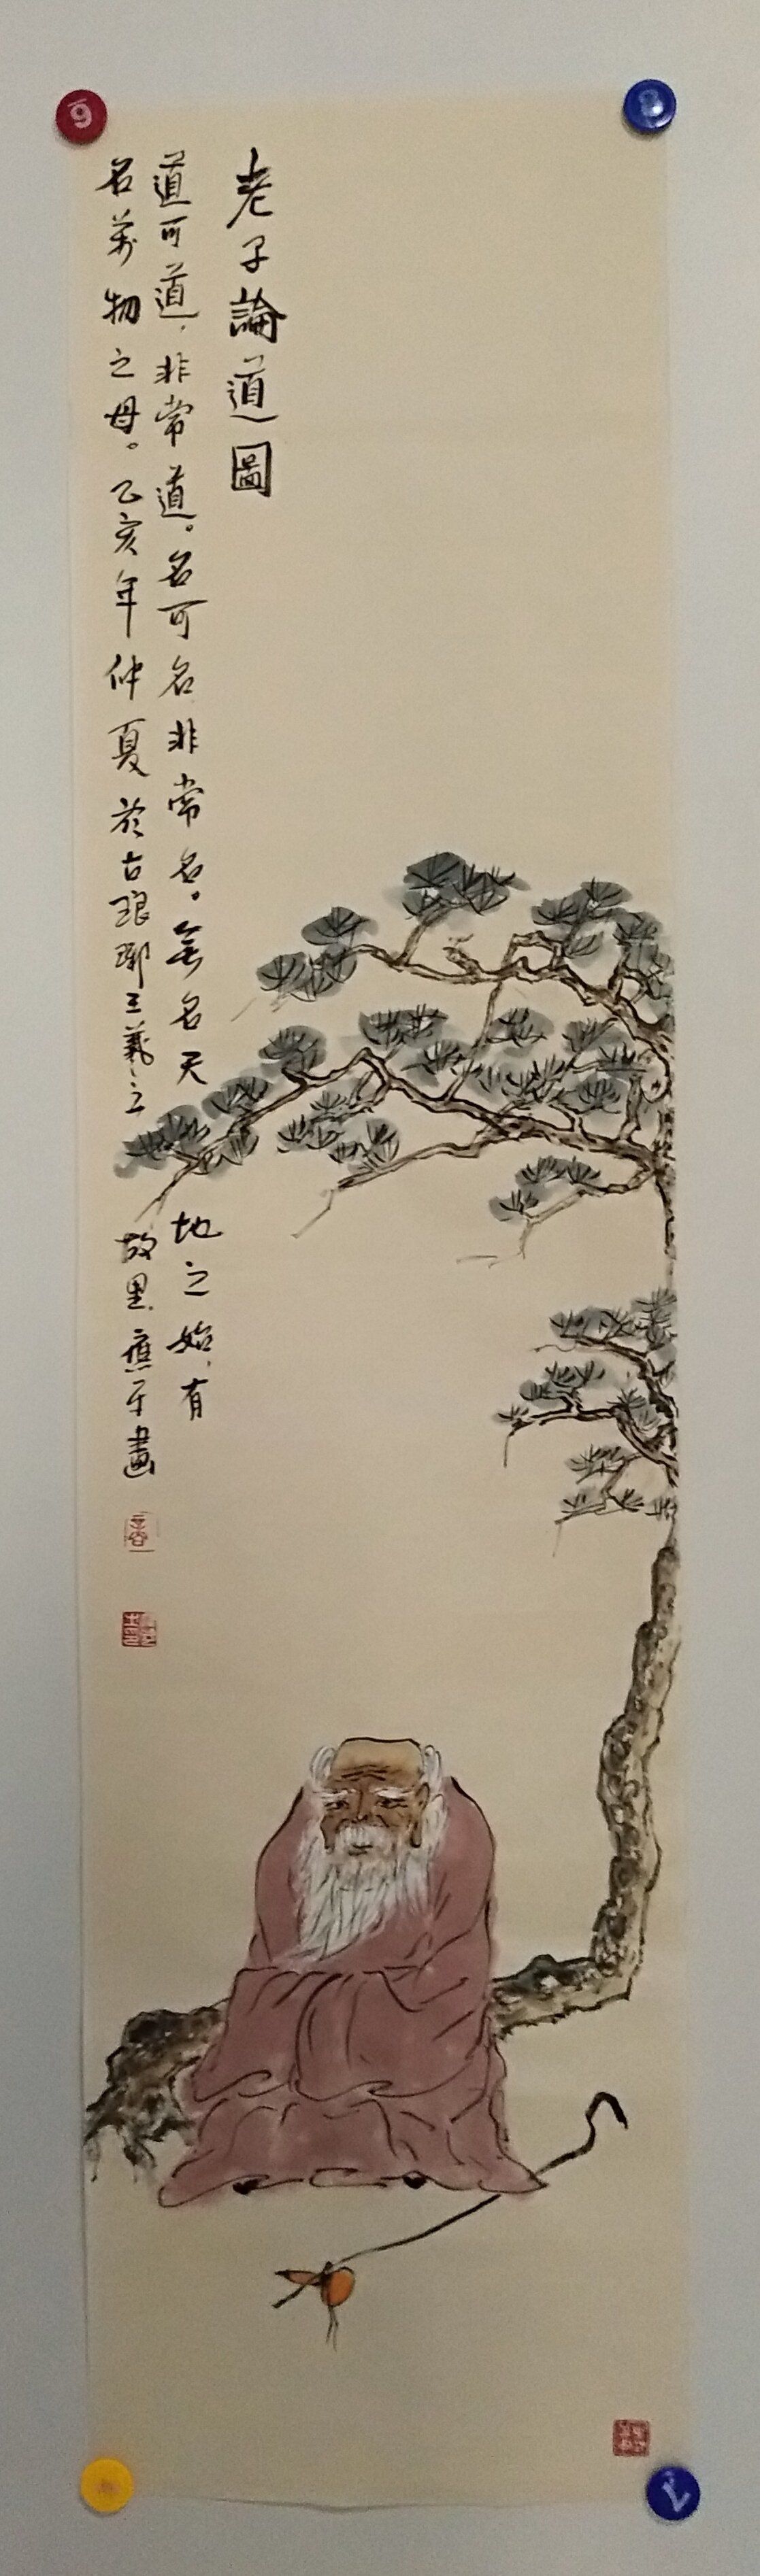 老子論道圖
道可道，非常道。名可名非常名。無名天地之始，有
名萬物之母。乙亥年仲夏於古琅琊王羲之故里應平畫